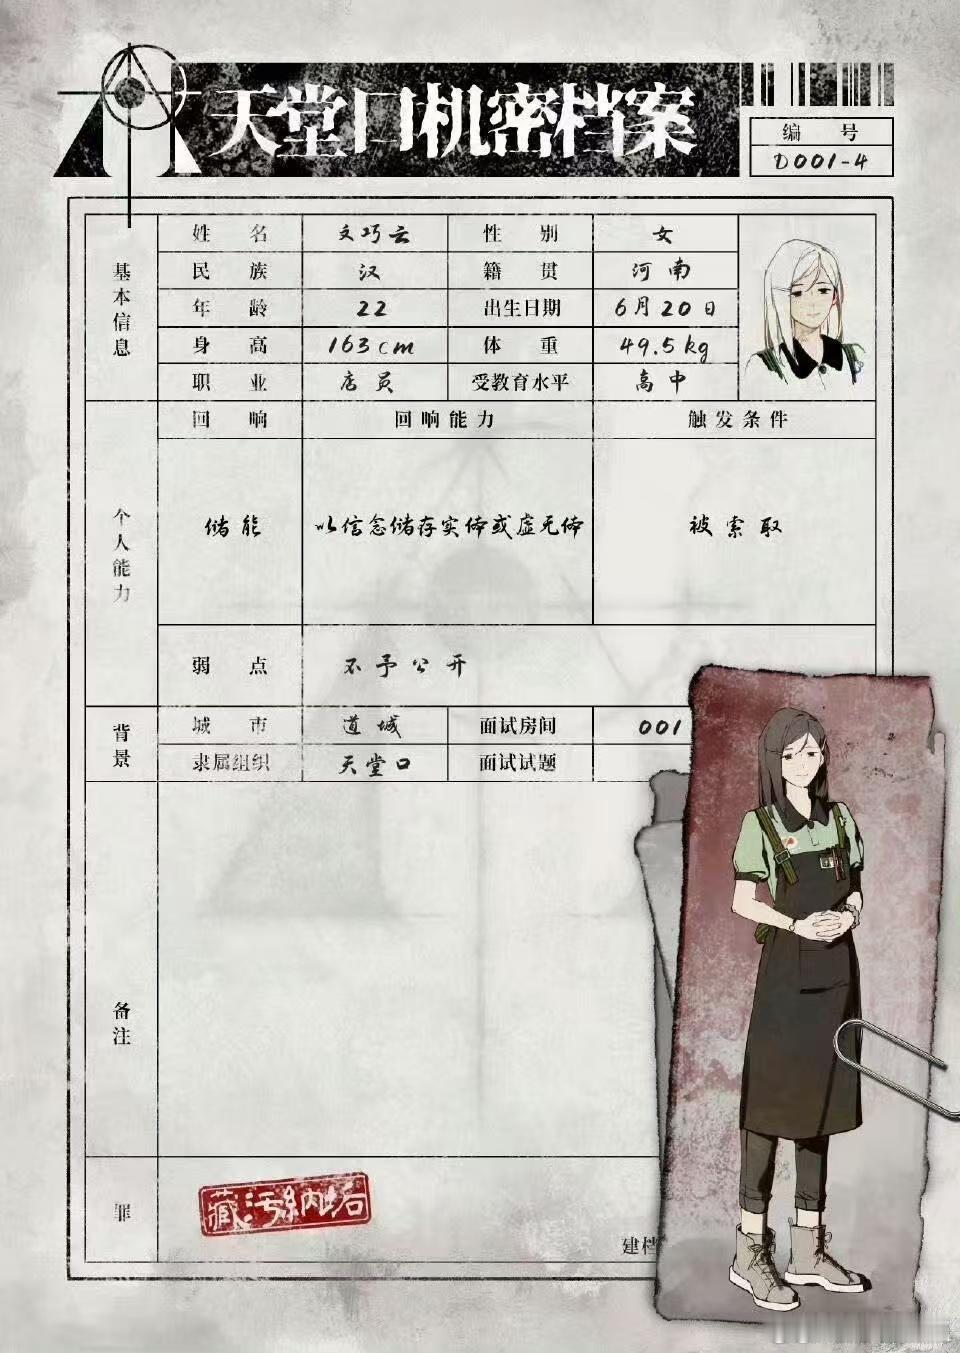 天堂口机密档案
编 号
D001-4
基本信息
姓 名 文巧云 性 别 女
民 族 汉 籍 贯 河南
年 龄 22 出生日期 6月20日
身 高 163cm 体 重 49.5kg
职 业 店员 受教育水平 高中
个人能力
回 响 回响能力 触发条件
储能 以信念储存实体或虚无体 被索取
弱 点 不予公开
背景
城 市 道城 面试房间 001
隶属组织 天堂口 面试试题
备注
罪
藏污纳垢
建档